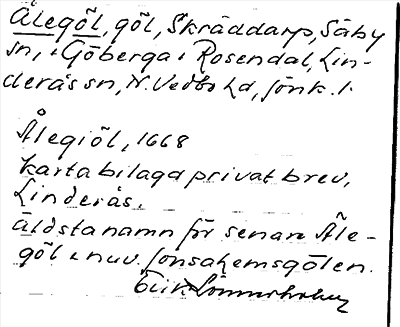 Ålegöl, göl, Skräddarp, Säby
sn, i Göberga i Rosendal, Lin-
derås sn, N. Vedbo hd, Jönk. l.
Ålegiöl, 1668
Karta bilaga privat brev,
Linderås.
äldsta namn för senare Åle-
göl i nuv. Jonsakemsgölen.